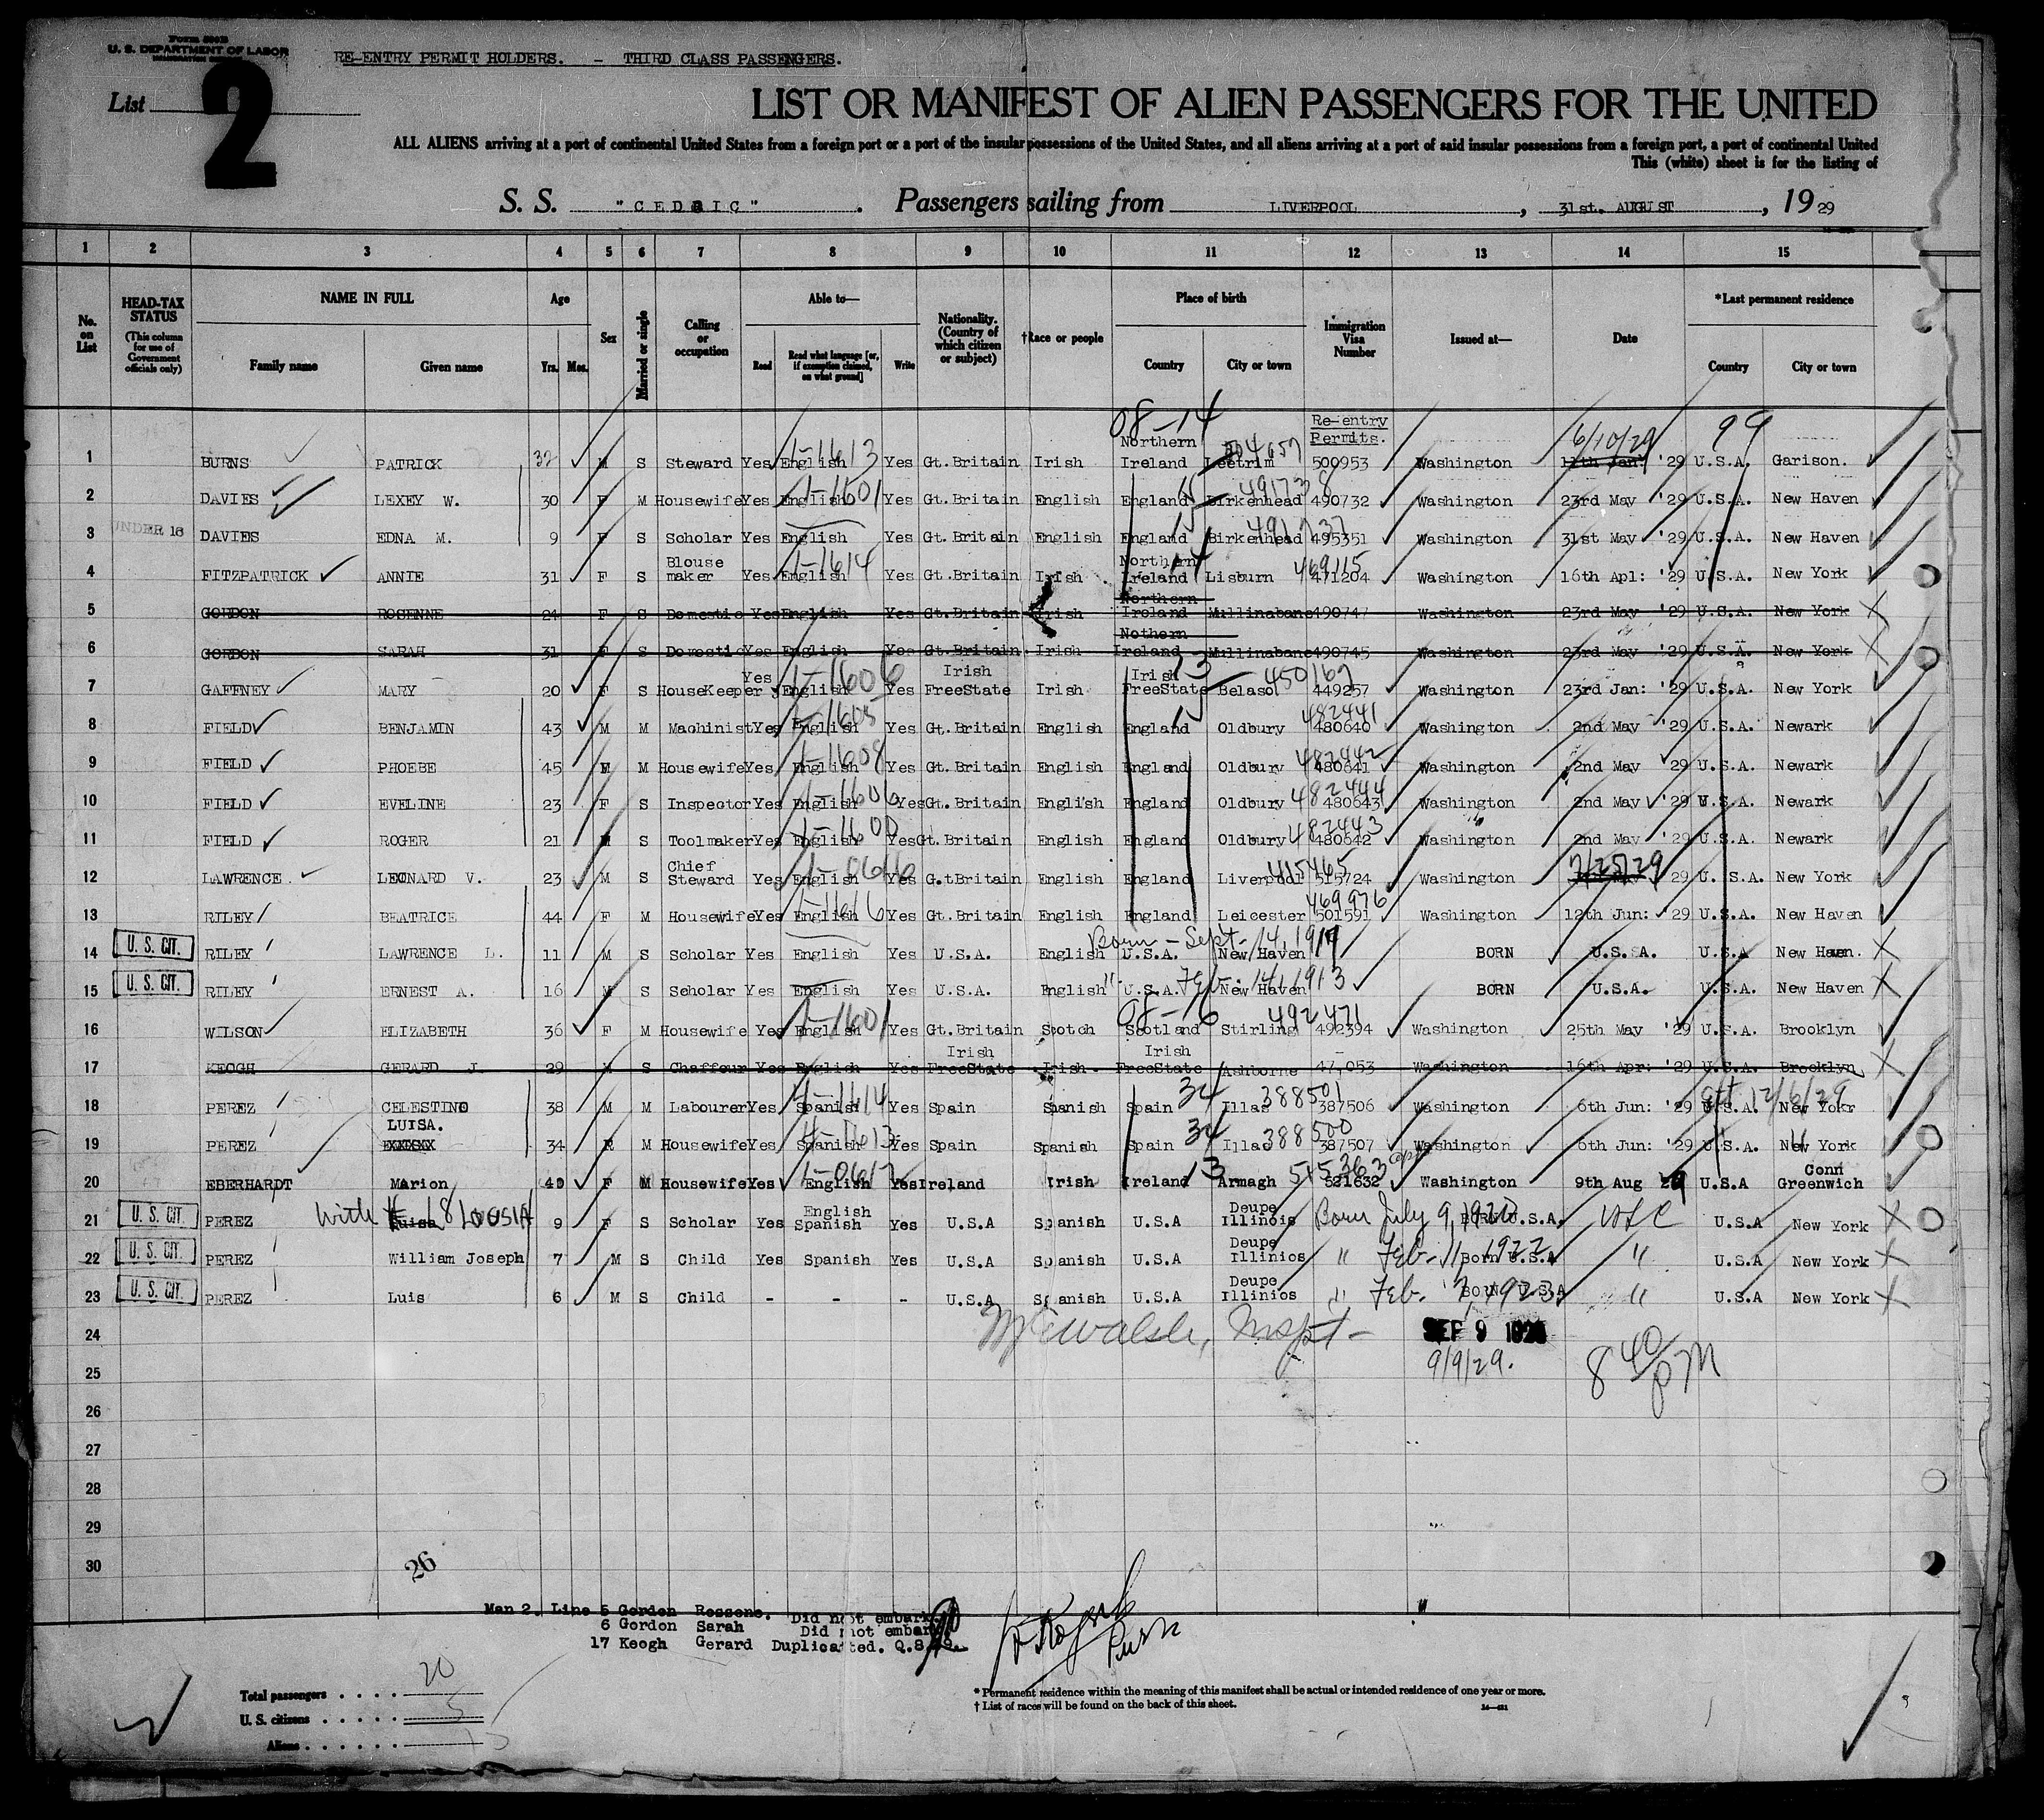 Form 500B
U. S. DEPARTMENT OF LABOR
RE-ENTRY PERMIT HOLDERS. - THIRD CLASS PASSENGERS.
List 2
LIST OR MANIFEST OF ALIEN PASSENGERS FOR THE UNITED
ALL ALIENS arriving at a port of continental United States from a foreign port or a port of the insular possessions of the United States, and all aliens arriving at a port of said insular possessions from a foreign port, a port of continental United
This (white) sheet is for the listing of
S. S. "CEDRIC". Passengers sailing from LIVERPOOL, 31st. AUGUST, 1929
1 2 3 4 5 6 7 8 9 10 11 12 13 14 15
No. on List
HEAD-TAX STATUS (This column for use of Government officials only)
NAME IN FULL Family name Given name
Age Yrs. Mos.
Sex
Married or single
Calling or occupation
Able to— Read Read what language [or, if exemption claimed, on what ground] Write
Nationality. (Country of which citizen or subject)
†Race or people
Place of birth Country City or town
Immigration Visa Number
Issued at—
Date
*Last permanent residence Country City or town
08-14 Re-entry Permits. 6/10/29 99
1 BURNS PATRICK 32 M S Steward Yes English 1-1613 Yes Gt.Britain Irish Northern Ireland Leetrim 504657 500953 Washington '29 U.S.A. Garison.
2 DAVIES LEXEY W. 30 F M Housewife Yes English 1-1601 Yes Gt.Britain English England 15 Birkenhead 491738 490732 Washington 23rd May '29 U.S.A. New Haven
3 UNDER 16 DAVIES EDNA M. 9 F S Scholar Yes English Yes Gt.Britain English England 15 Birkenhead 491737 495351 Washington 31st May '29 U.S.A. New Haven
4 FITZPATRICK ANNIE 31 F S Blouse maker Yes English 1-1614 Yes Gt.Britain Irish Northern Ireland 14 Lisburn 469115 471204 Washington 16th Apl: '29 U.S.A. New York
5 GORDON ROSENNE 24 F S Domestic Yes English Yes Gt.Britain Irish Northern Ireland Mullinabane 490747 Washington 23rd May '29 U.S.A. New York
6 GORDON SARAH 31 F S Domestic Yes English Yes Gt.Britain Irish Nothern Ireland Mullinabane 490745 Washington 23rd May '29 U.S.A. New York
7 GAFFNEY MARY 20 F S HouseKeeper Yes English 1-1606 Yes Irish FreeState Irish Irish FreeState 13 Belaso 450167 449257 Washington 23rd Jan: '29 U.S.A. New York
8 FIELD BENJAMIN 43 M M Machinist Yes English 1-1605 Yes Gt.Britain English England 15 Oldbury 482441 480640 Washington 2nd May '29 U.S.A. Newark
9 FIELD PHOEBE 45 M Housewife Yes English 1-1608 Yes Gt.Britain English England Oldbury 482442 480641 Washington 2nd May '29 U.S.A. Newark
10 FIELD EVELINE 23 F S Inspector Yes English 1-1606 Yes Gt.Britain English England Oldbury 482444 480643 Washington 2nd May '29 U.S.A. Newark
11 FIELD ROGER 21 M S Toolmaker Yes English 1-1600 Yes Gt.Britain English England Oldbury 482443 480642 Washington 2nd May '29 U.S.A. Newark
12 LAWRENCE LEONARD V. 23 M S Chief Steward Yes English 1-0616 Yes G.tBritain English England Liverpool 415465 515724 Washington 7/25/29 29 U.S.A. New York
13 RILEY BEATRICE 44 F M Housewife Yes English 1-1616 Yes Gt.Britain English England Leicester 469976 501591 Washington 12th Jun: 29 U.S.A. New Haven
14 U. S. CIT. RILEY LAWRENCE L. 11 M S Scholar Yes English Yes U.S.A. English Born - Sept. 14, 1917 U.S.A. New Haven BORN U.S.A. U.S.A New Haven.
15 U. S. CIT. RILEY ERNEST A. 16 M S Scholar Yes English Yes U.S.A. English " Feb. 14, 1913 U.S.A. New Haven BORN U.S.A. U.S.A. New Haven
16 WILSON ELIZABETH 36 F M Housewife Yes English 1-1601 Yes Gt.Britain Scotch 08-16 Scotland Stirling 492471 492394 Washington 25th May '29 U.S.A. Brooklyn
17 KEOGH GERARD J. 29 M S Chaffeur Yes English Yes Irish FreeState Irish Irish FreeState Ashborne 47,053 Washington 16th Apr: '29 U.S.A. Brooklyn
18 PEREZ CELESTINO 38 M M Labourer Yes Spanish 4-1614 Yes Spain Spanish Spain 34 Illac 388501 387506 Washington 6th Jun: '29 U.S.A. New Yokr 12/6/29
19 PEREZ LUISA. 34 F M Housewife Yes Spanish 4-1613 Yes Spain Spanish Spain 34 Illac 388500 387507 Washington 6th Jun: '29 U.S.A. New York "
20 EBERHARDT Marion 40 F M Housewife Yes English 1-0617 Yes Ireland Irish Ireland 13 Armagh 515363 521632 Washington 9th Aug 29 U.S.A Conn Greenwich
21 U. S. CIT. PEREZ With # 18 Luisa LOUSIA 9 F S Scholar Yes English Spanish Yes U.S.A Spanish U.S.A Deupe Illinois Born July 9, 1920 BORN U.S.A. U.S.A New York
22 U. S. CIT. PEREZ William Joseph 7 M S Child Yes Spanish Yes U.S.A Spanish U.S.A Deupe Illinios " Feb - 11, 1922 Born U.S.A " U.S.A New York
23 U. S. CIT. PEREZ Luis 6 M S Child - - - U.S.A Spanish U.S.A Deupe Illinios " Feb. 7, 1923 BORN U.S.A " U.S.A New York
24 Walsh, Inspt- SEP 9 1929
25 9/9/29. 8 40/PM
26
27
28
29
30
26
Man 2. Line 5 Gordon Rossene. Did not embark.
6 Gordon Sarah Did not embark
17 Keogh Gerard Duplicated. Q.8.19.
Purs
Total passengers . . . . 20
U. S. citizens . . . . . 5
Aliens . . . . . . 15
* Permanent residence within the meaning of this manifest shall be actual or intended residence of one year or more.
† List of races will be found on the back of this sheet.